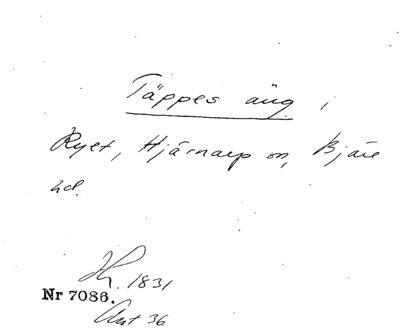 Täppes äng i
Ryet, Hjärnarp sn, Bjäre
hd.
1831
Nr 7086.
Ant 36